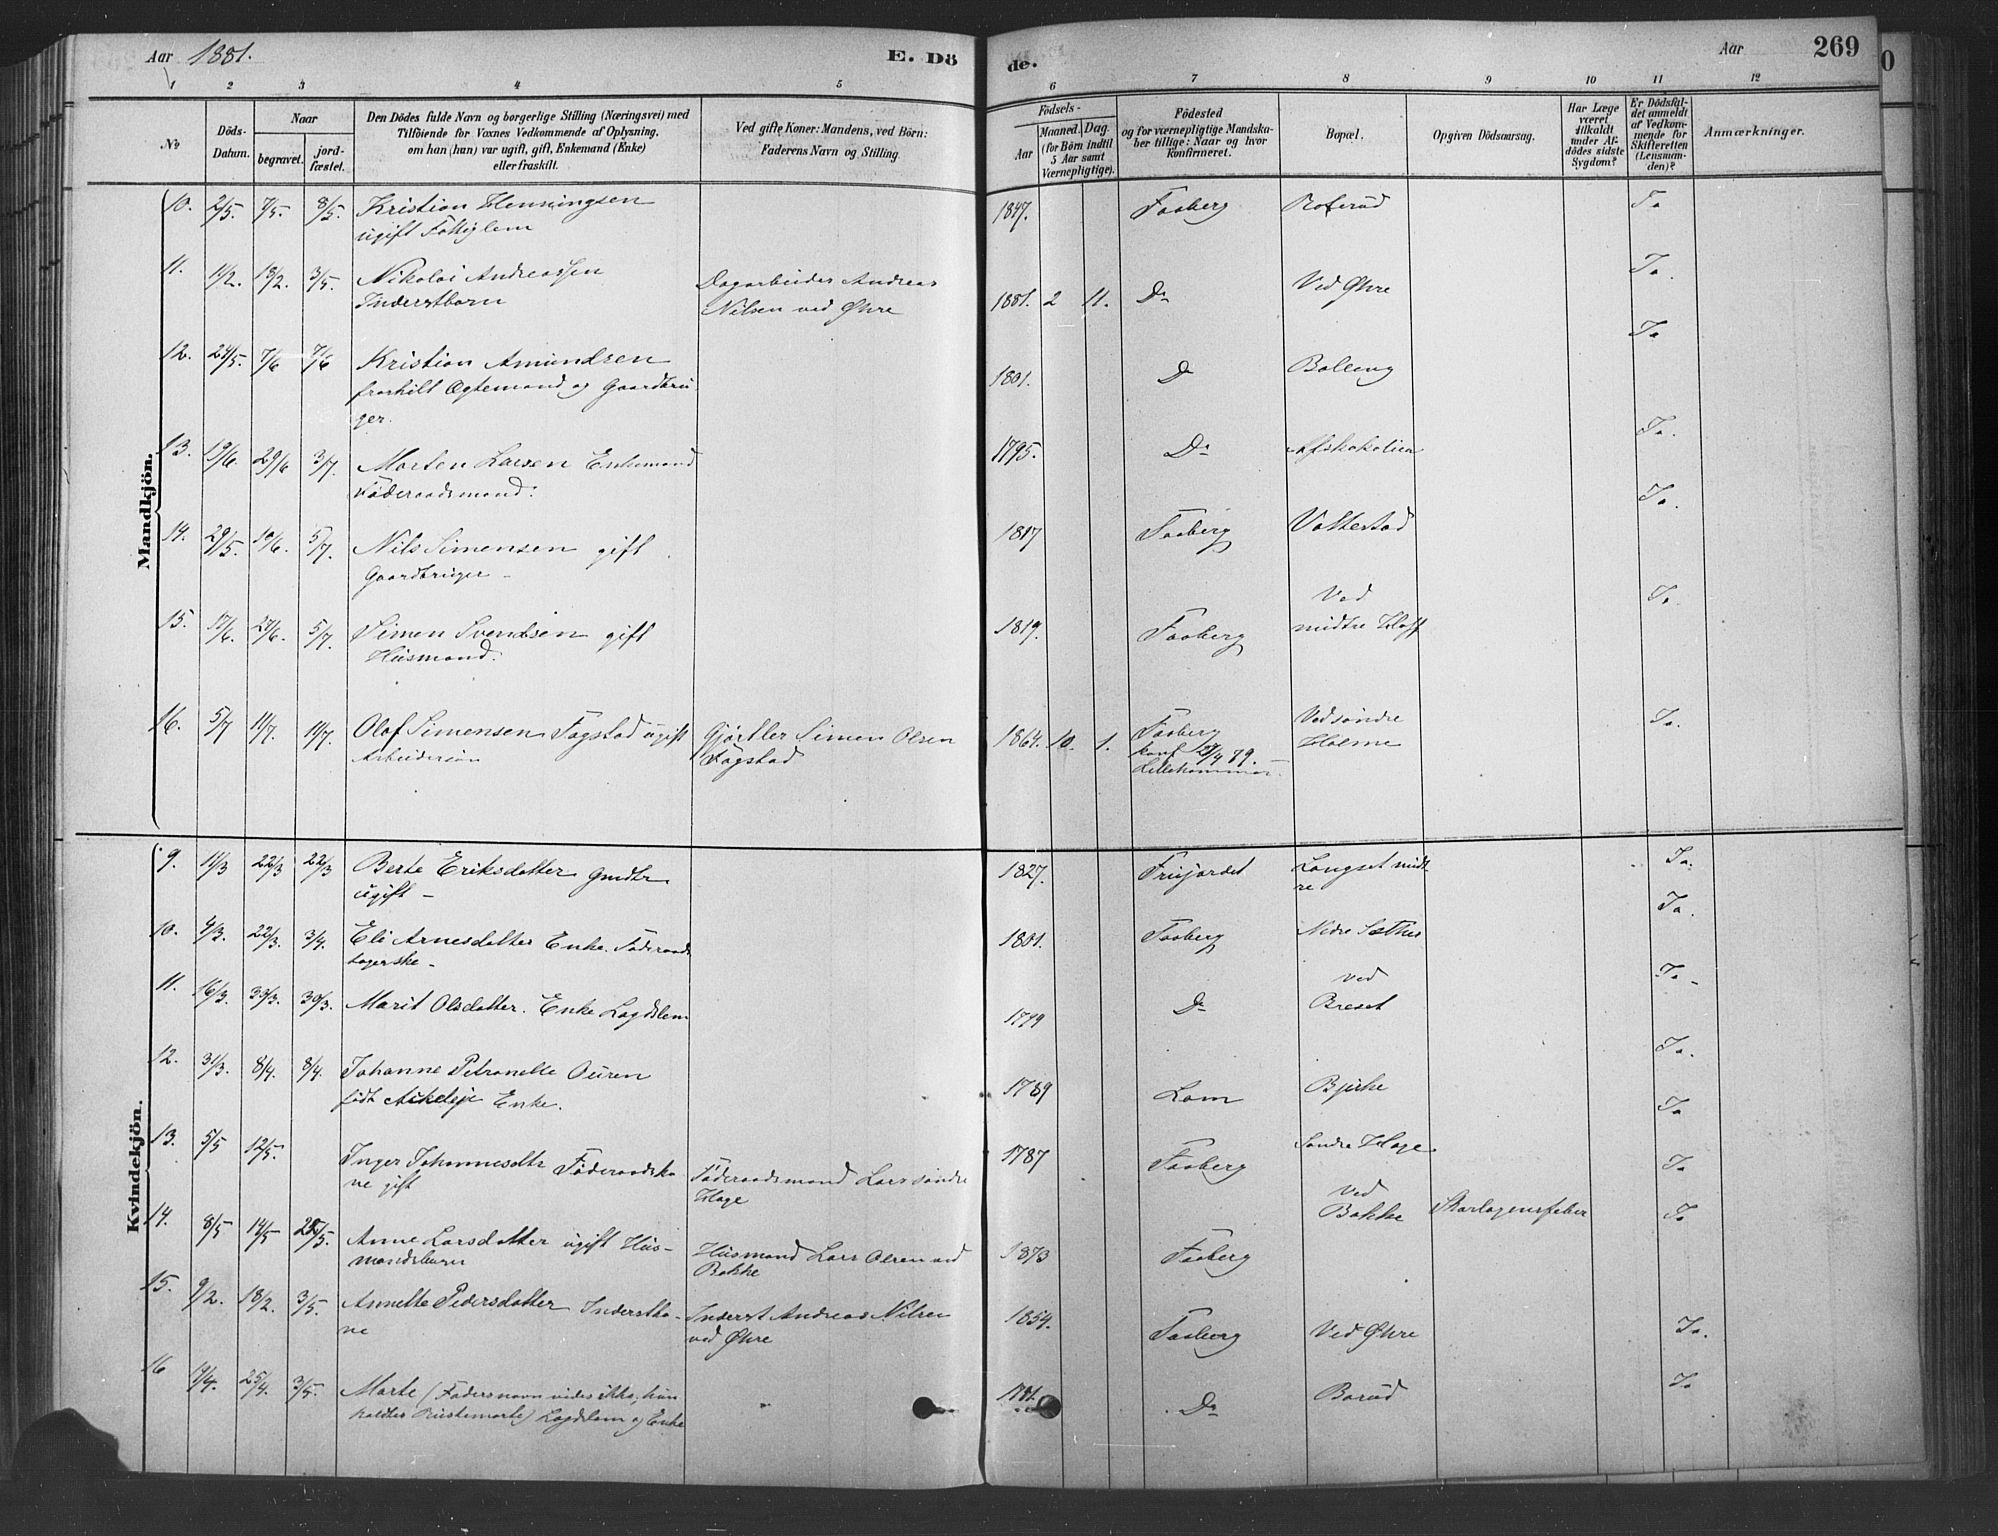 Aar 1881.
E. Dö
de.
Aar
269
1 2 3 4 5 6 7 8 9 10 11 12
No
Döds-Datum.
Naar
begravet.
jord-fæstet.
Den Dödes fulde Navn og borgerlige Stilling (Næringsvei) med
Tilföiende for Voxnes Vedkommende af Oplysning.
om han (hun) var ugift, gift, Enkemand (Enke)
eller fraskilt.
Ved gifte Koner: Mandens, ved Börn:
Faderens Navn og Stilling.
Födsels-
Aar
Maaned. Dag.
(for Börn indtil
5 Aar samt
Værnepligtige).
Födested
og for værnepligtige Mandska-
ber tillige: Naar og hvor
Konfirmeret.
Bopæl.
Opgiven Dödsaarsag.
Har Læge
været
tilkaldt
under Af-
dödes sidste
Sygdom?
Er Dödsfal-
det anmeldt
af Vedkom-
mende for
Skifteretten
(Lensman-
den)?
Anmærkninger.
Mandkjön.
10. 2/5. 7/5. 8/5. Kristian Henningsen 1847. Faaberg Roterud Ja
ugift Fattiglem
11. 11/2. 18/2. 3/5. Nikolai Andreassen Dagarbeider Andreas 1881. 2 11. Do Ved Øvre Ja.
Inderstbarn Nilsen ved Øvre
12. 24/5. 7/6 7/6 Kristian Amundsen 1801. Do Balleng Ja
fraskilt Ægtemand og Gaardbru-
ger.
13. 19/6. 29/6 3/7. Morten Larsen Enkemand 1795. Do Ja.
Föderaadsmand.
14. 29/5. 10/6. 5/7. Nils Simensen gift 1817 Faaberg Vattestad Ja.
Gaardbruger
15. 17/6. 27/6. 5/7. Simen Svendsen gift 1819. Faaberg Ved midtre Hoff Ja
Husmand.
16. 5/7 11/7. 11/7. Olaf Simensen Fagstad ugift Gjörtler Simen Olsen 1864. 10. 1. Faaberg Ved söndre Holme Ja.
Arbeidersön Fagstad konf 79. Lillehammer.
Kvindekjön.
9. 11/3 22/3 22/3 Berte Eriksdatter Gmdtr 1827. Langset midt-re Ja.
ugift -
10. 4/3. 22/3. 3/4. Eli Arnesdatter Enke. Föderaads 1801. Faaberg Nedre Sæther Ja.
tagerske -
11. 16/3. 30/3. 30/3. Marit Olsdatter. Enke Lagdslem 1779 Do ved Breset Ja -
12. 31/3. 8/4. 8/4. Johanne Petronelle Ouren 1789 Lom Bjerke Ja.
födt Akeleje Enke.
13. 5/5 12/5. Inger Johannesdtr Föderaadsko- Föderaadsmand Lars söndre 1787 Faaberg Söndre Hage Ja
ne gift Hage
14. 8/5 14/5 25/5. Anne Larsdatter ugift Hus- Husmand Lars Olsen ved 1873 Faaberg Ved Bakke Skarlagensfeber Ja
mandsbarn Bakke
15. 9/2. 18/2. 3/5. Annette Pedersdatter Inderstko- Inderst Andreas Nilsen 1854. Faaberg Ved Øvre Ja.
ne ved Øvre
16 19/4. 25/4. 3/5. Marte (Fadersnavn vides ikke, hun 1781. Do Barud Ja
kaldtes Rustemarte) Lagdslem og Enke